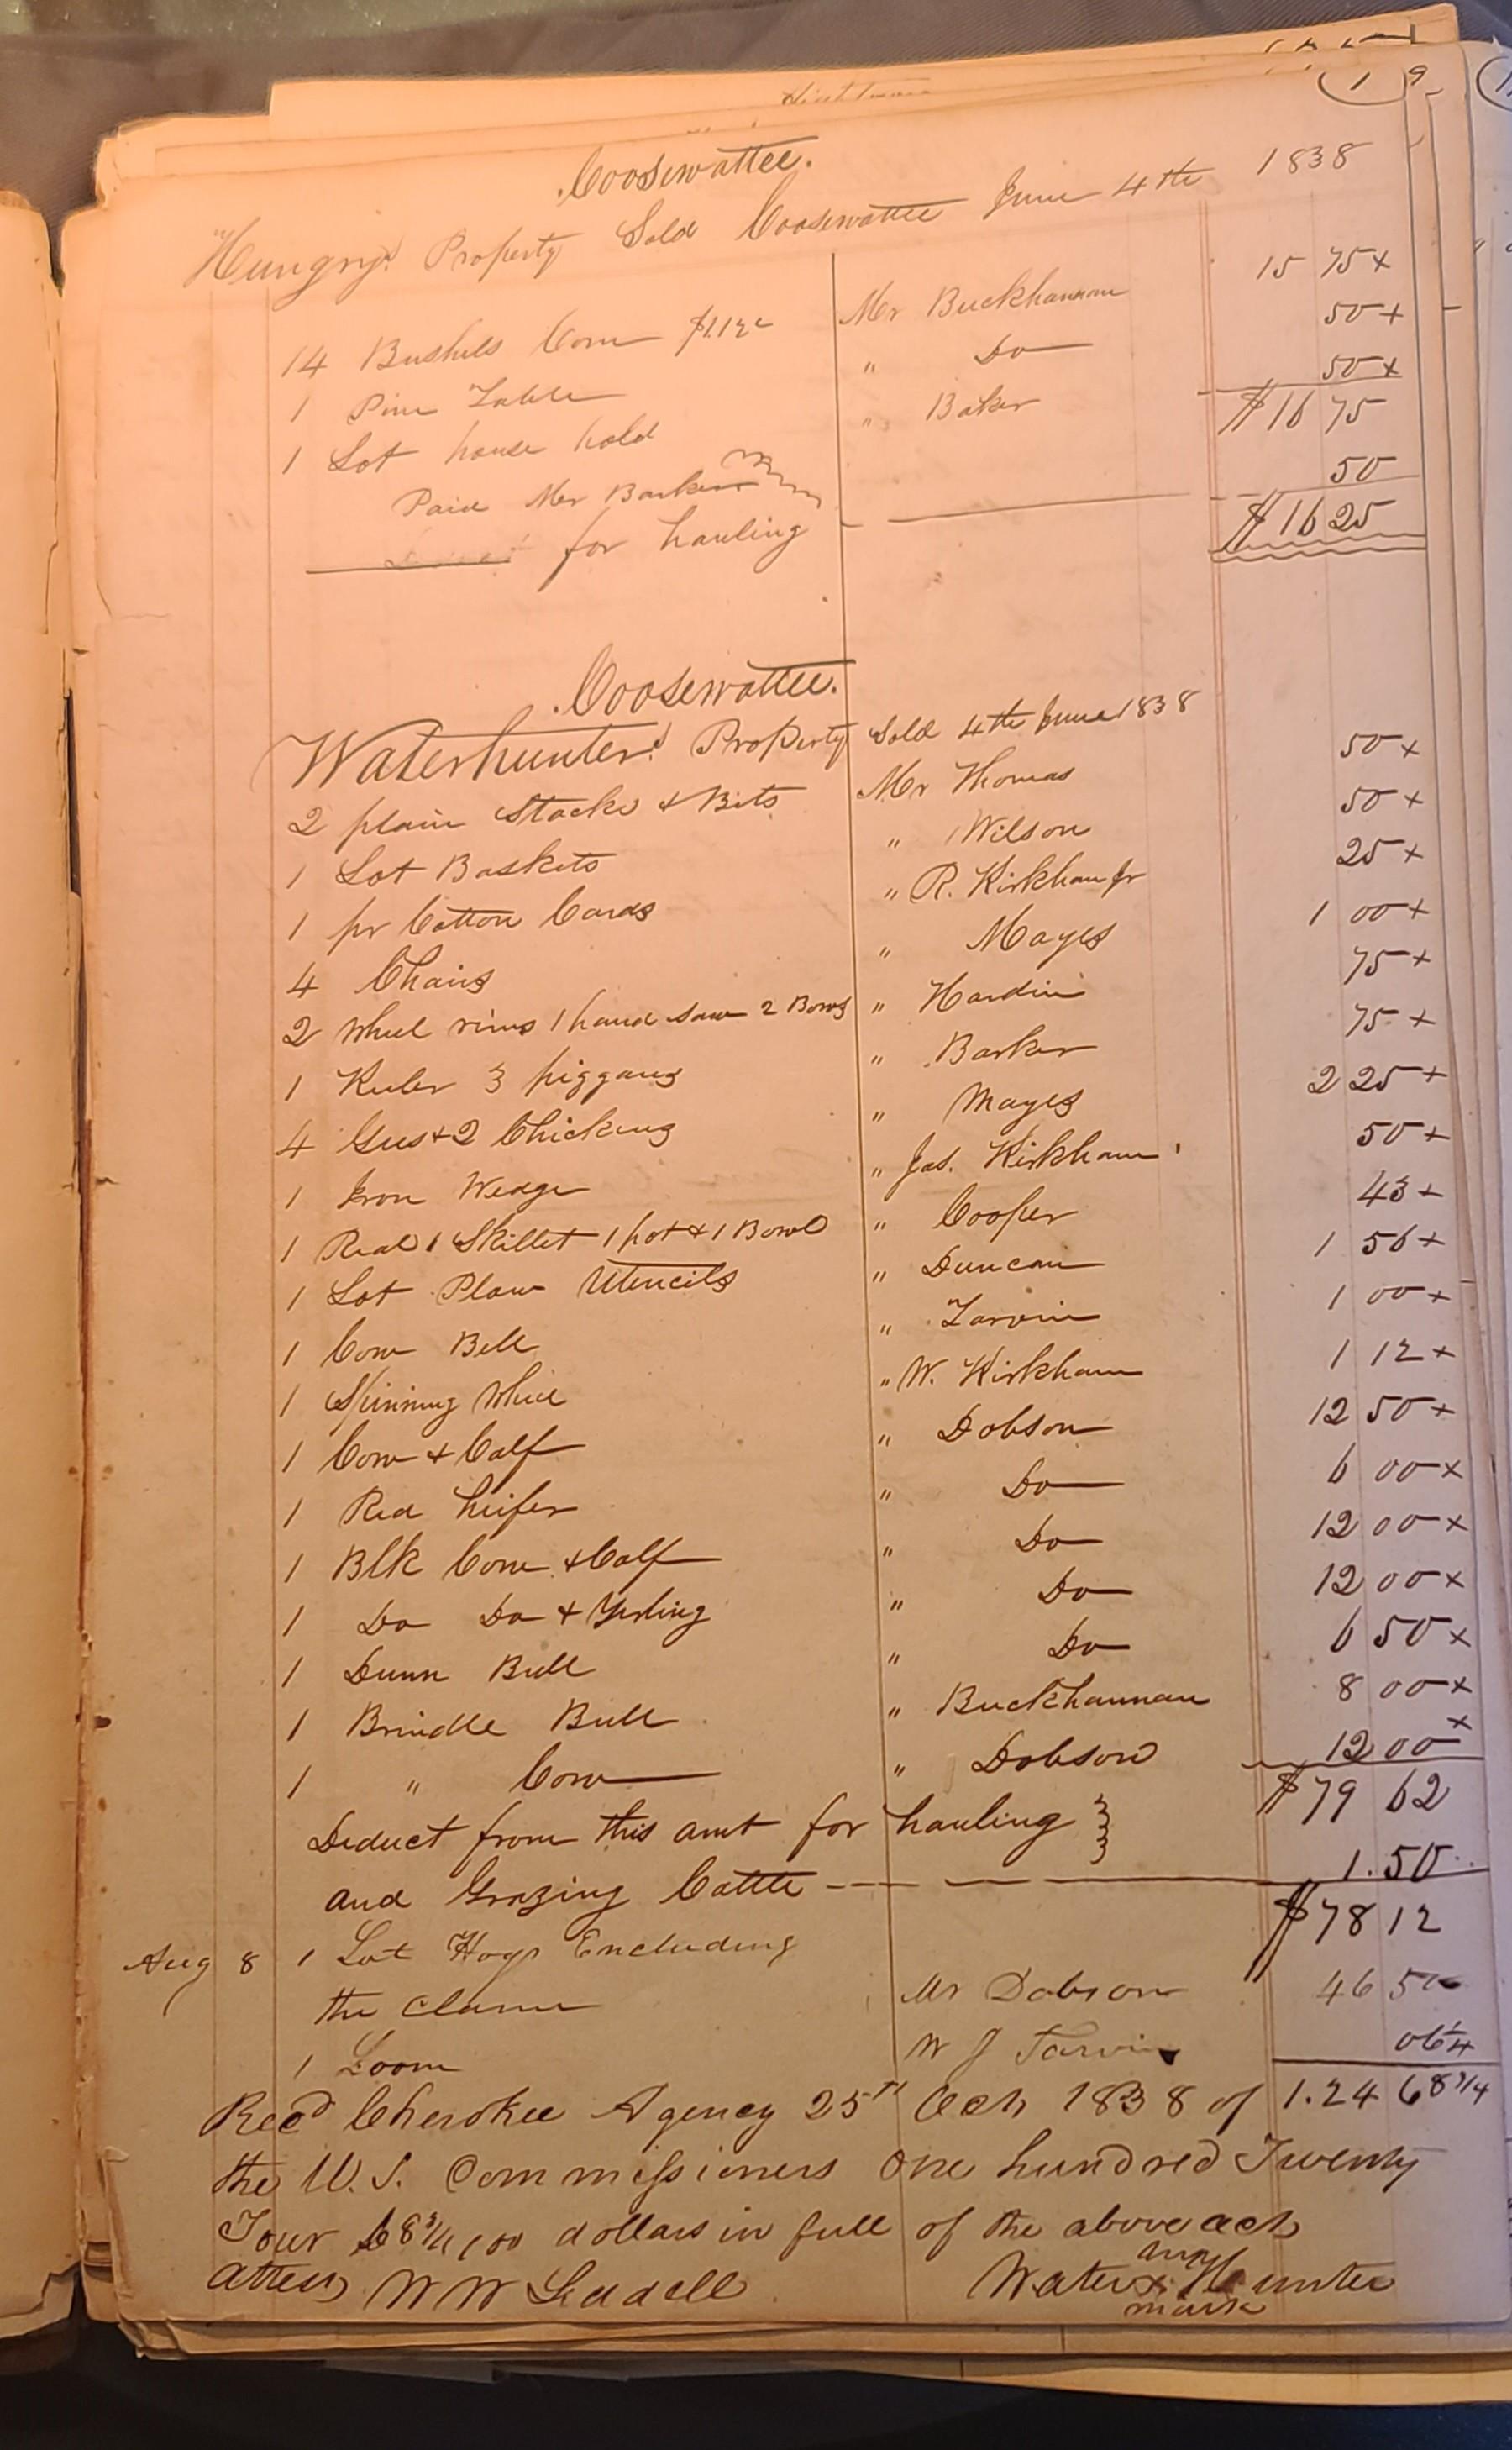 19
Coosewattee.
Hungry's Property Sold Coosewattee June 4th 1838
14 Bushels Corn $1.12c Mr Buckhannan 15 75 x
1 Pine Table " Do 50 x
1 Lot house hold " Baker 50 x
$16 75
Paid Mr Barker
for hauling 50
$16 25
Coosewattee.
Waterhunter's Property Sold 4th June 1838
2 plain Stocks & Bits Mr Thomas 50 x
1 Lot Baskets " Wilson 50 x
1 pr Cotton Cards " R. Kirkham Jr 25 x
4 Chairs " Mayes 1 00 x
2 wheel rims 1 hand saw 2 Bows " Hardin 75 x
1 Keeler 3 piggans " Barker 75 x
4 Gees + 2 Chickens " Mayes 2 25 x
1 Iron Wedge " Jas. Kirkham 50 x
1 Real 1 Skillet 1 pot & 1 Bowl " Cooper 43 x
1 Lot Plow Utencils " Duncan 1 56 x
1 Cow Bell " Tarvin 1 00 x
1 Spinning Wheel " W. Kirkham 1 12 x
1 Cow & Calf " Dobson 12 50 x
1 Red heifer " Do 6 00 x
1 Blk Cow & Calf " Do 12 00 x
1 Do Do & Yerling " Do 12 00 x
1 Dunn Bull " Do 6 50 x
1 Brindle Bull " Buckhannan 8 00 x
1 " Cow " Dobson 12 00 x
$79 62
Deduct from this amt for hauling
and Grazing Cattle 1.50
$78 12
Aug 8 1 Lot Hogs Encluding
the Clame Mr Dobson 46 50
1 Loom W J Tarvin 06 1/4
Recd Cherokee Agency 25th Octr 1838 of 1.24 68 3/4
the U. S. Commissioners One hundred Twenty
Four 68 3/4 100 dollars in full of the above act
attest W W Liddell Water x Hunter
his
mark